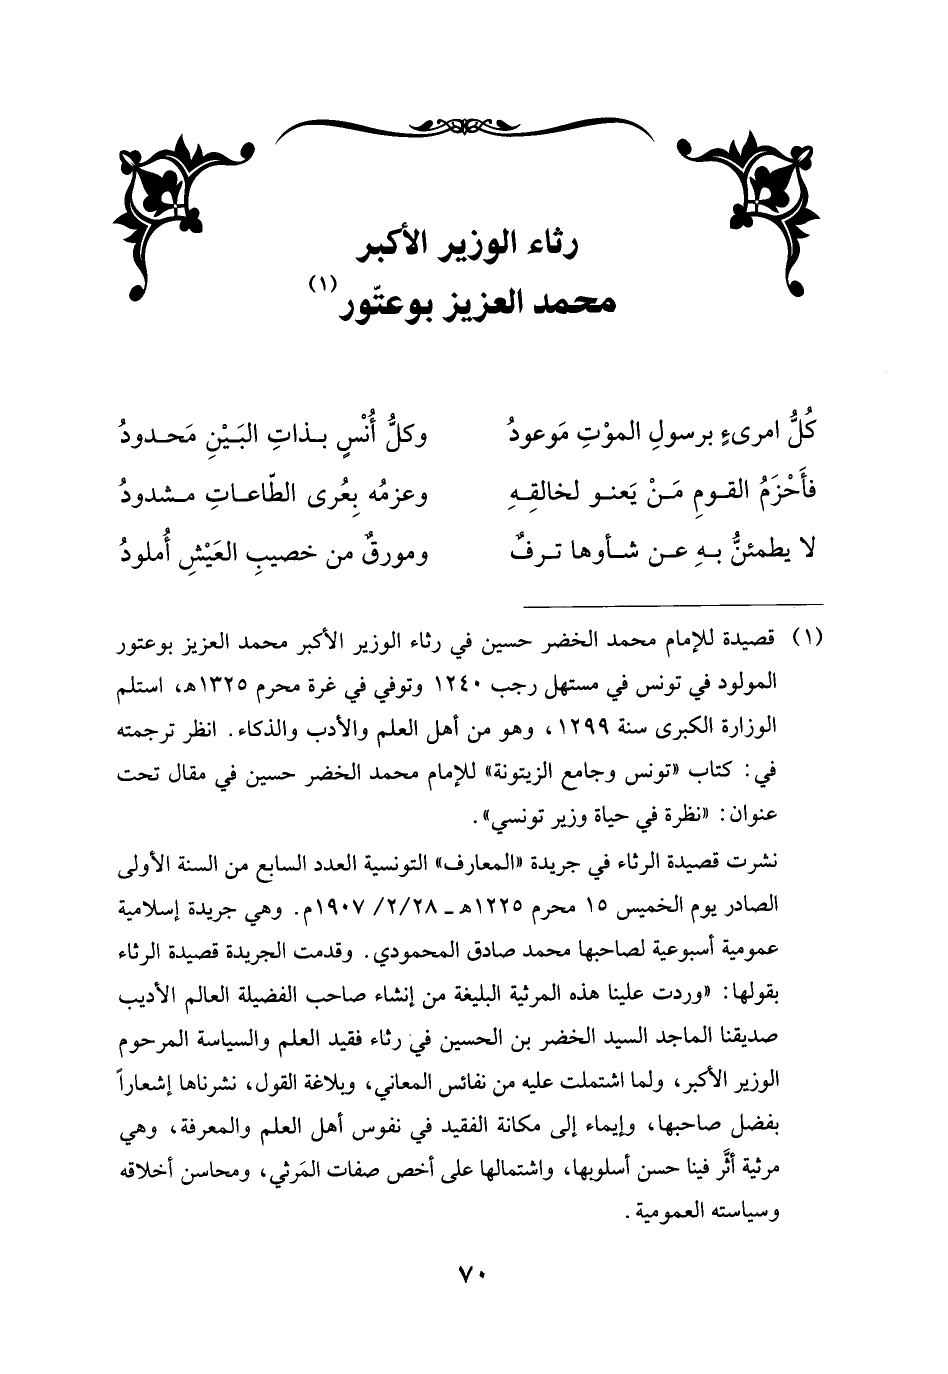 رثاء الوزير الأكبر
محمد العزيز بوعتّور (١)
كُلُّ امرىءٍ برسولِ الموْتِ مَوعودُ وكلُّ أُنْسٍ بـذاتِ البَـيْنِ مَحـدودُ
فأَحْزَمُ القـومِ مَـنْ يَعنـو لخالقِـهِ وعزمُه بِعُرى الطّاعـاتِ مـشدودُ
لا يطمئنُّ بـهِ عـن شـأوها تـرفٌ ومورقٌ من خصيبِ العَيْشِ أُملودُ
(١) قصيدة للإمام محمد الخضر حسين في رثاء الوزير الأكبر محمد العزيز بوعتور
المولود في تونس في مستهل رجب ١٢٤٠ وتوفي في غرة محرم ١٣٢٥هـ، استلم
الوزارة الكبرى سنة ١٢٩٩، وهو من أهل العلم والأدب والذكاء. انظر ترجمته
في: كتاب «تونس وجامع الزيتونة» للإمام محمد الخضر حسين في مقال تحت
عنوان: «نظرة في حياة وزير تونسي».
نشرت قصيدة الرثاء في جريدة «المعارف» التونسية العدد السابع من السنة الأولى
الصادر يوم الخميس ١٥ محرم ١٢٢٥هـ ـ ٢/٢٨/ ١٩٠٧م. وهي جريدة إسلامية
عمومية أسبوعية لصاحبها محمد صادق المحمودي. وقدمت الجريدة قصيدة الرثاء
بقولها: «وردت علينا هذه المرثية البليغة من إنشاء صاحب الفضيلة العالم الأديب
صديقنا الماجد السيد الخضر بن الحسين في رثاء فقيد العلم والسياسة المرحوم
الوزير الأكبر، ولما اشتملت عليه من نفائس المعاني، وبلاغة القول، نشرناها إشعاراً
بفضل صاحبها، وإيماء إلى مكانة الفقيد في نفوس أهل العلم والمعرفة، وهي
مرثية أثَّر فينا حسن أسلوبها، واشتمالها على أخص صفات المَرثي، ومحاسن أخلاقه
وسياسته العمومية.
٧٠